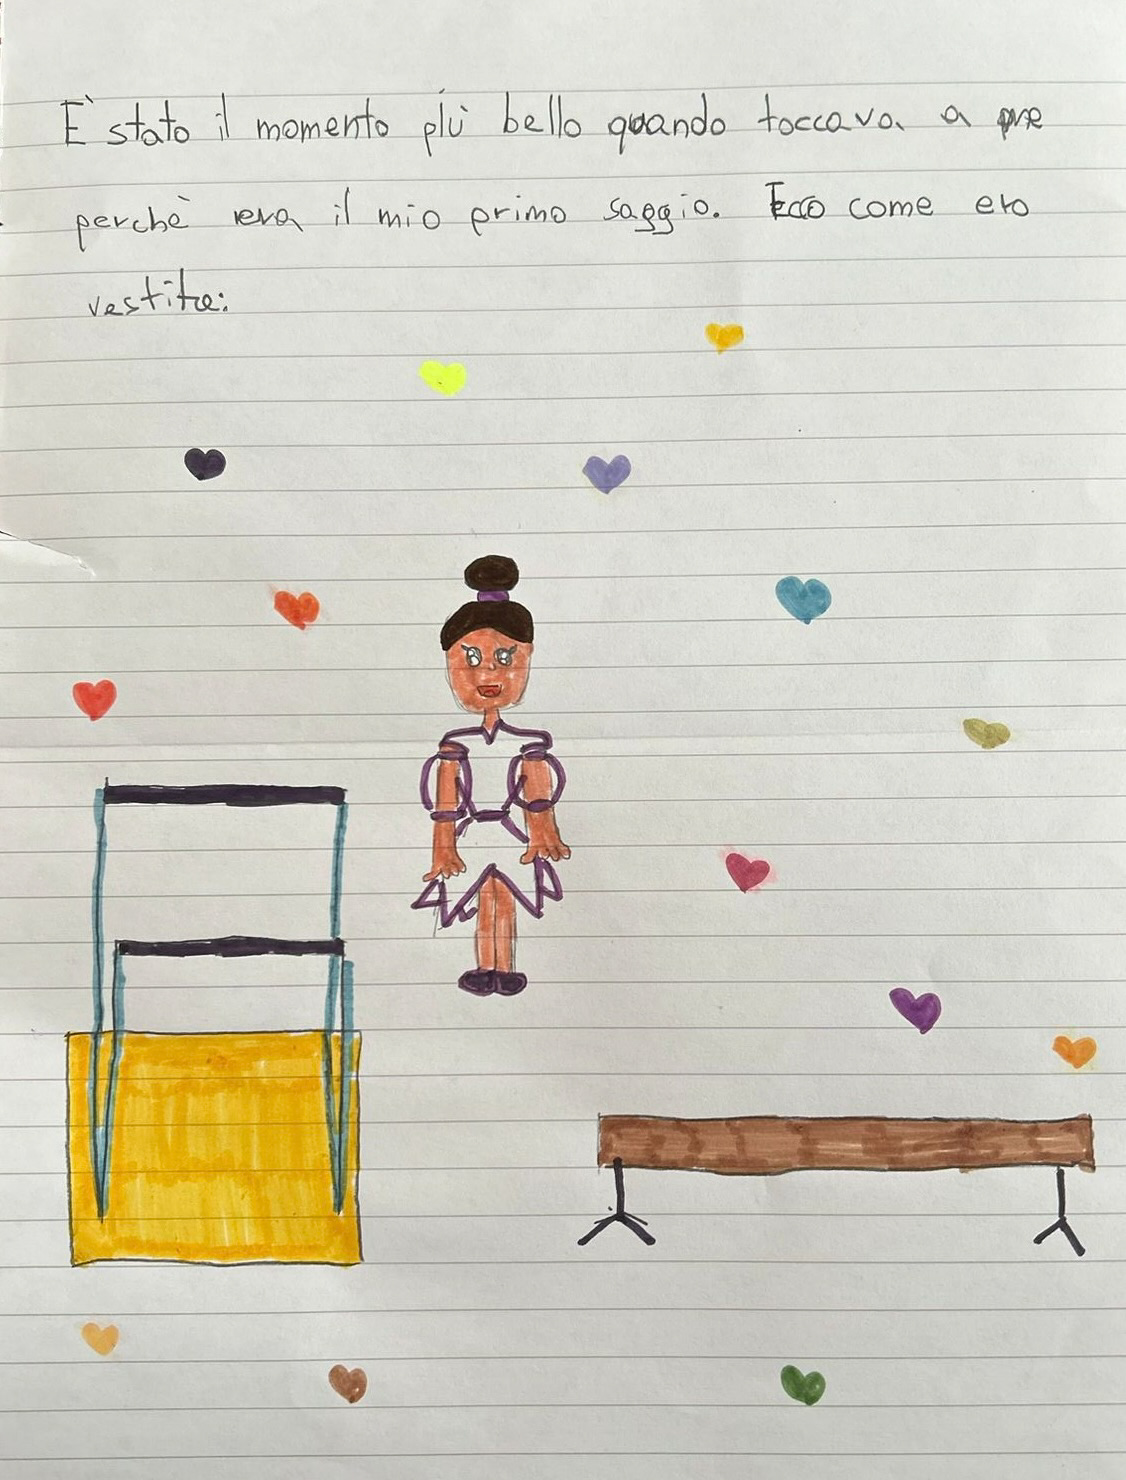 È stato il momento più bello quando toccava a me
perchè era il mio primo saggio. Ecco come ero
vestita: